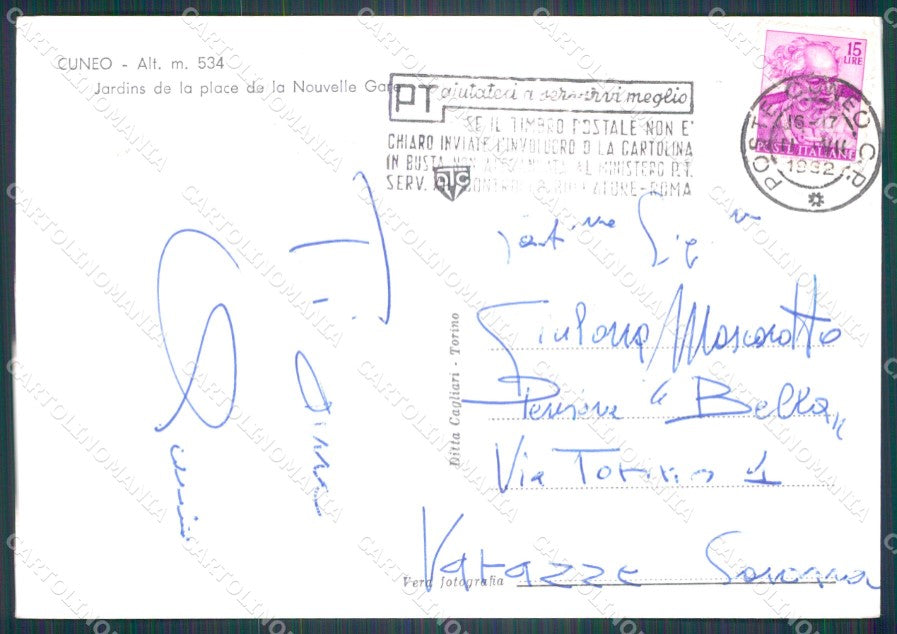 CUNEO - Alt. m. 534
Jardins de la place de la Nouvelle Gare
PT aiutateci a servirvi meglio
SE IL TIMBRO POSTALE NON E'
CHIARO INVIATE L'INVOLUCRO O LA CARTOLINA
IN BUSTA NON AFFRANCATA AL MINISTERO P.T.
SERV. ROMA
ATC
15
LIRE
POSTE ITALIANE
POSTE CUNEO C.P.
16-17
VII
1962
Ti amo
Ditta Cagliari - Torino
Gent.ma Sig.na
Giuliana Moscarotto
Pensione "Bella"
Via Torino 1
Varazze Savona
Vera fotografia
CARTOLINOMANIA